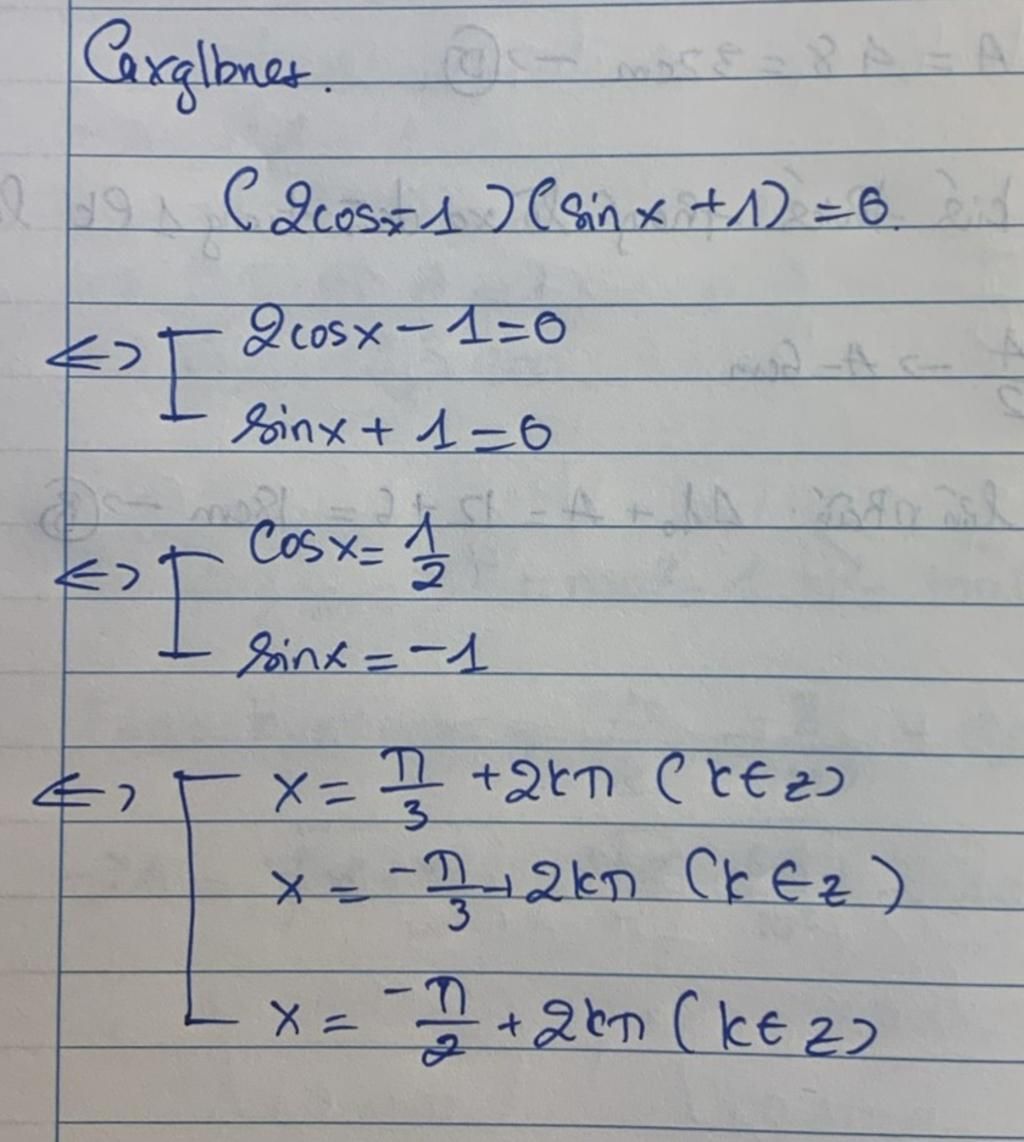 Caxglbnet.
(2cosx-1)(sinx+1)=0.
<=> [ 2cosx-1=0
sinx+1=0
<=> [ cosx=1/2
sinx=-1
<=> [ x=π/3+2kπ (k∈z)
x=-π/3+2kπ (k∈z)
x=-π/2+2kπ (k∈z)